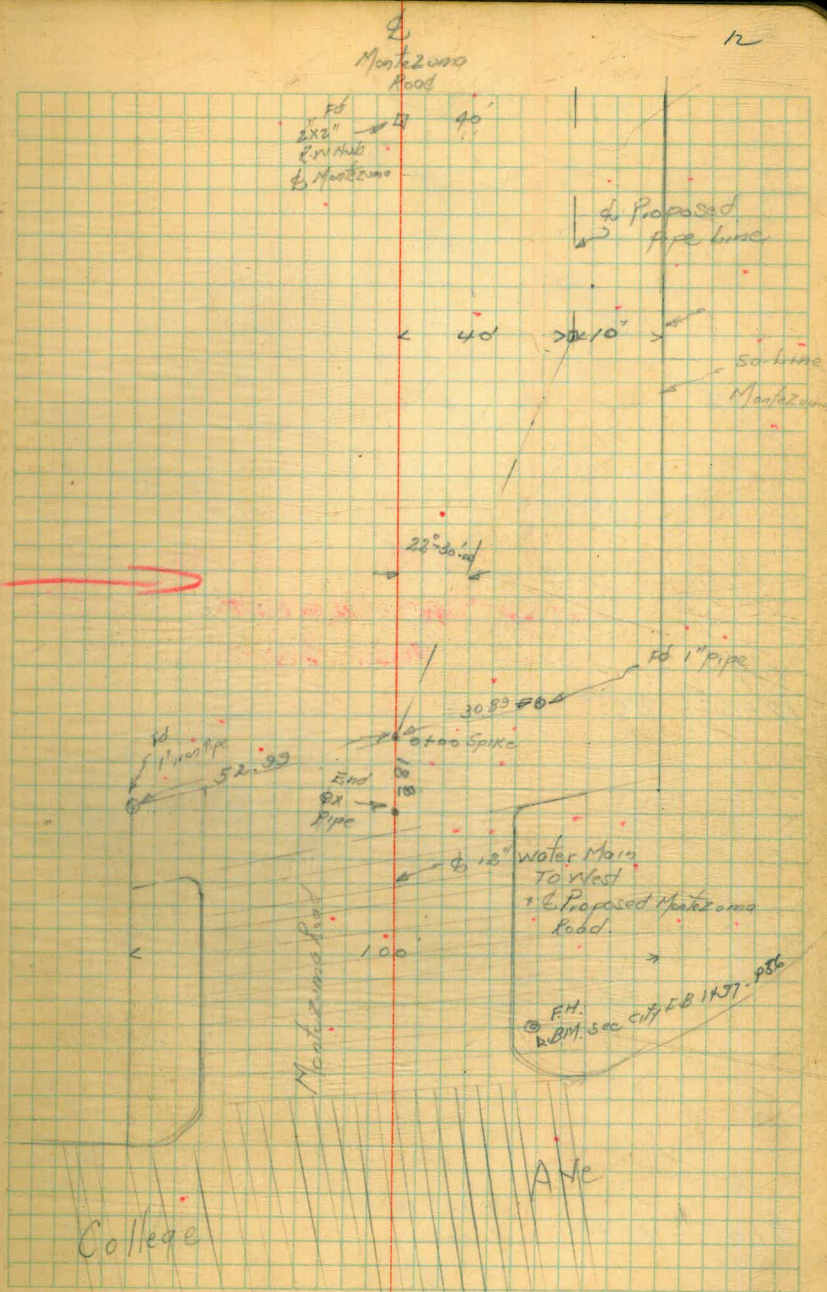 12
℄
Montezuma
Road
Fd
2"x2"
R.W Hub
℄ Montezuma
40'
℄ Proposed
Pipe Line
40'
10'
So-Line
Montezuma
22°-30'
Fd 1" pipe
30.89
0+00 Spike
Fd
1" iron Pipe
52.99
End
Ex
Pipe
℄ 12" Water Main
To West
℄ Proposed Montezuma
Road.
100
Montezuma Road
F.H.
B.M. see city F.B. 1497-
Ave
College